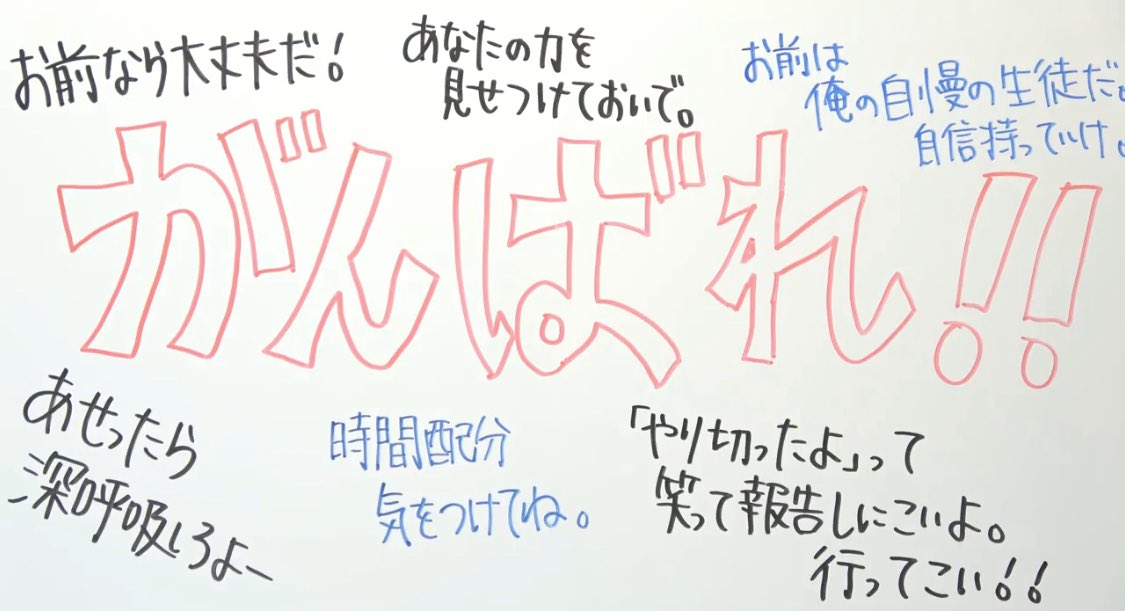 お前なら大丈夫だ！
あなたの力を
見せつけておいで。
お前は
俺の自慢の生徒だ。
自信持っていけ。
がんばれ！！
あせったら
深呼吸しろよー
時間配分
気をつけてね。
「やり切ったよ」って
笑って報告しにこいよ。
行ってこい！！